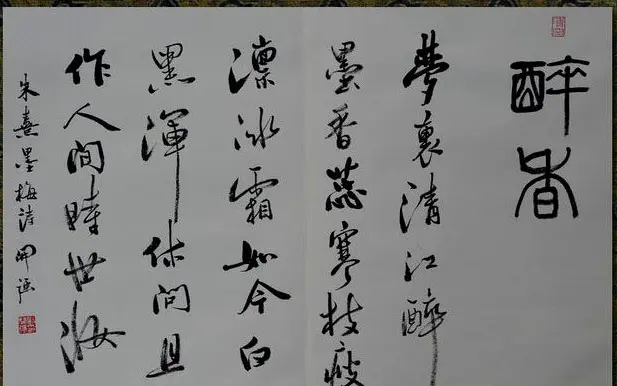 醉香
夢裏清江醉
墨香蕊寒枝瘦
凜冰霜如今白
黑渾休問且
作人間時世妝
朱熹墨梅詩